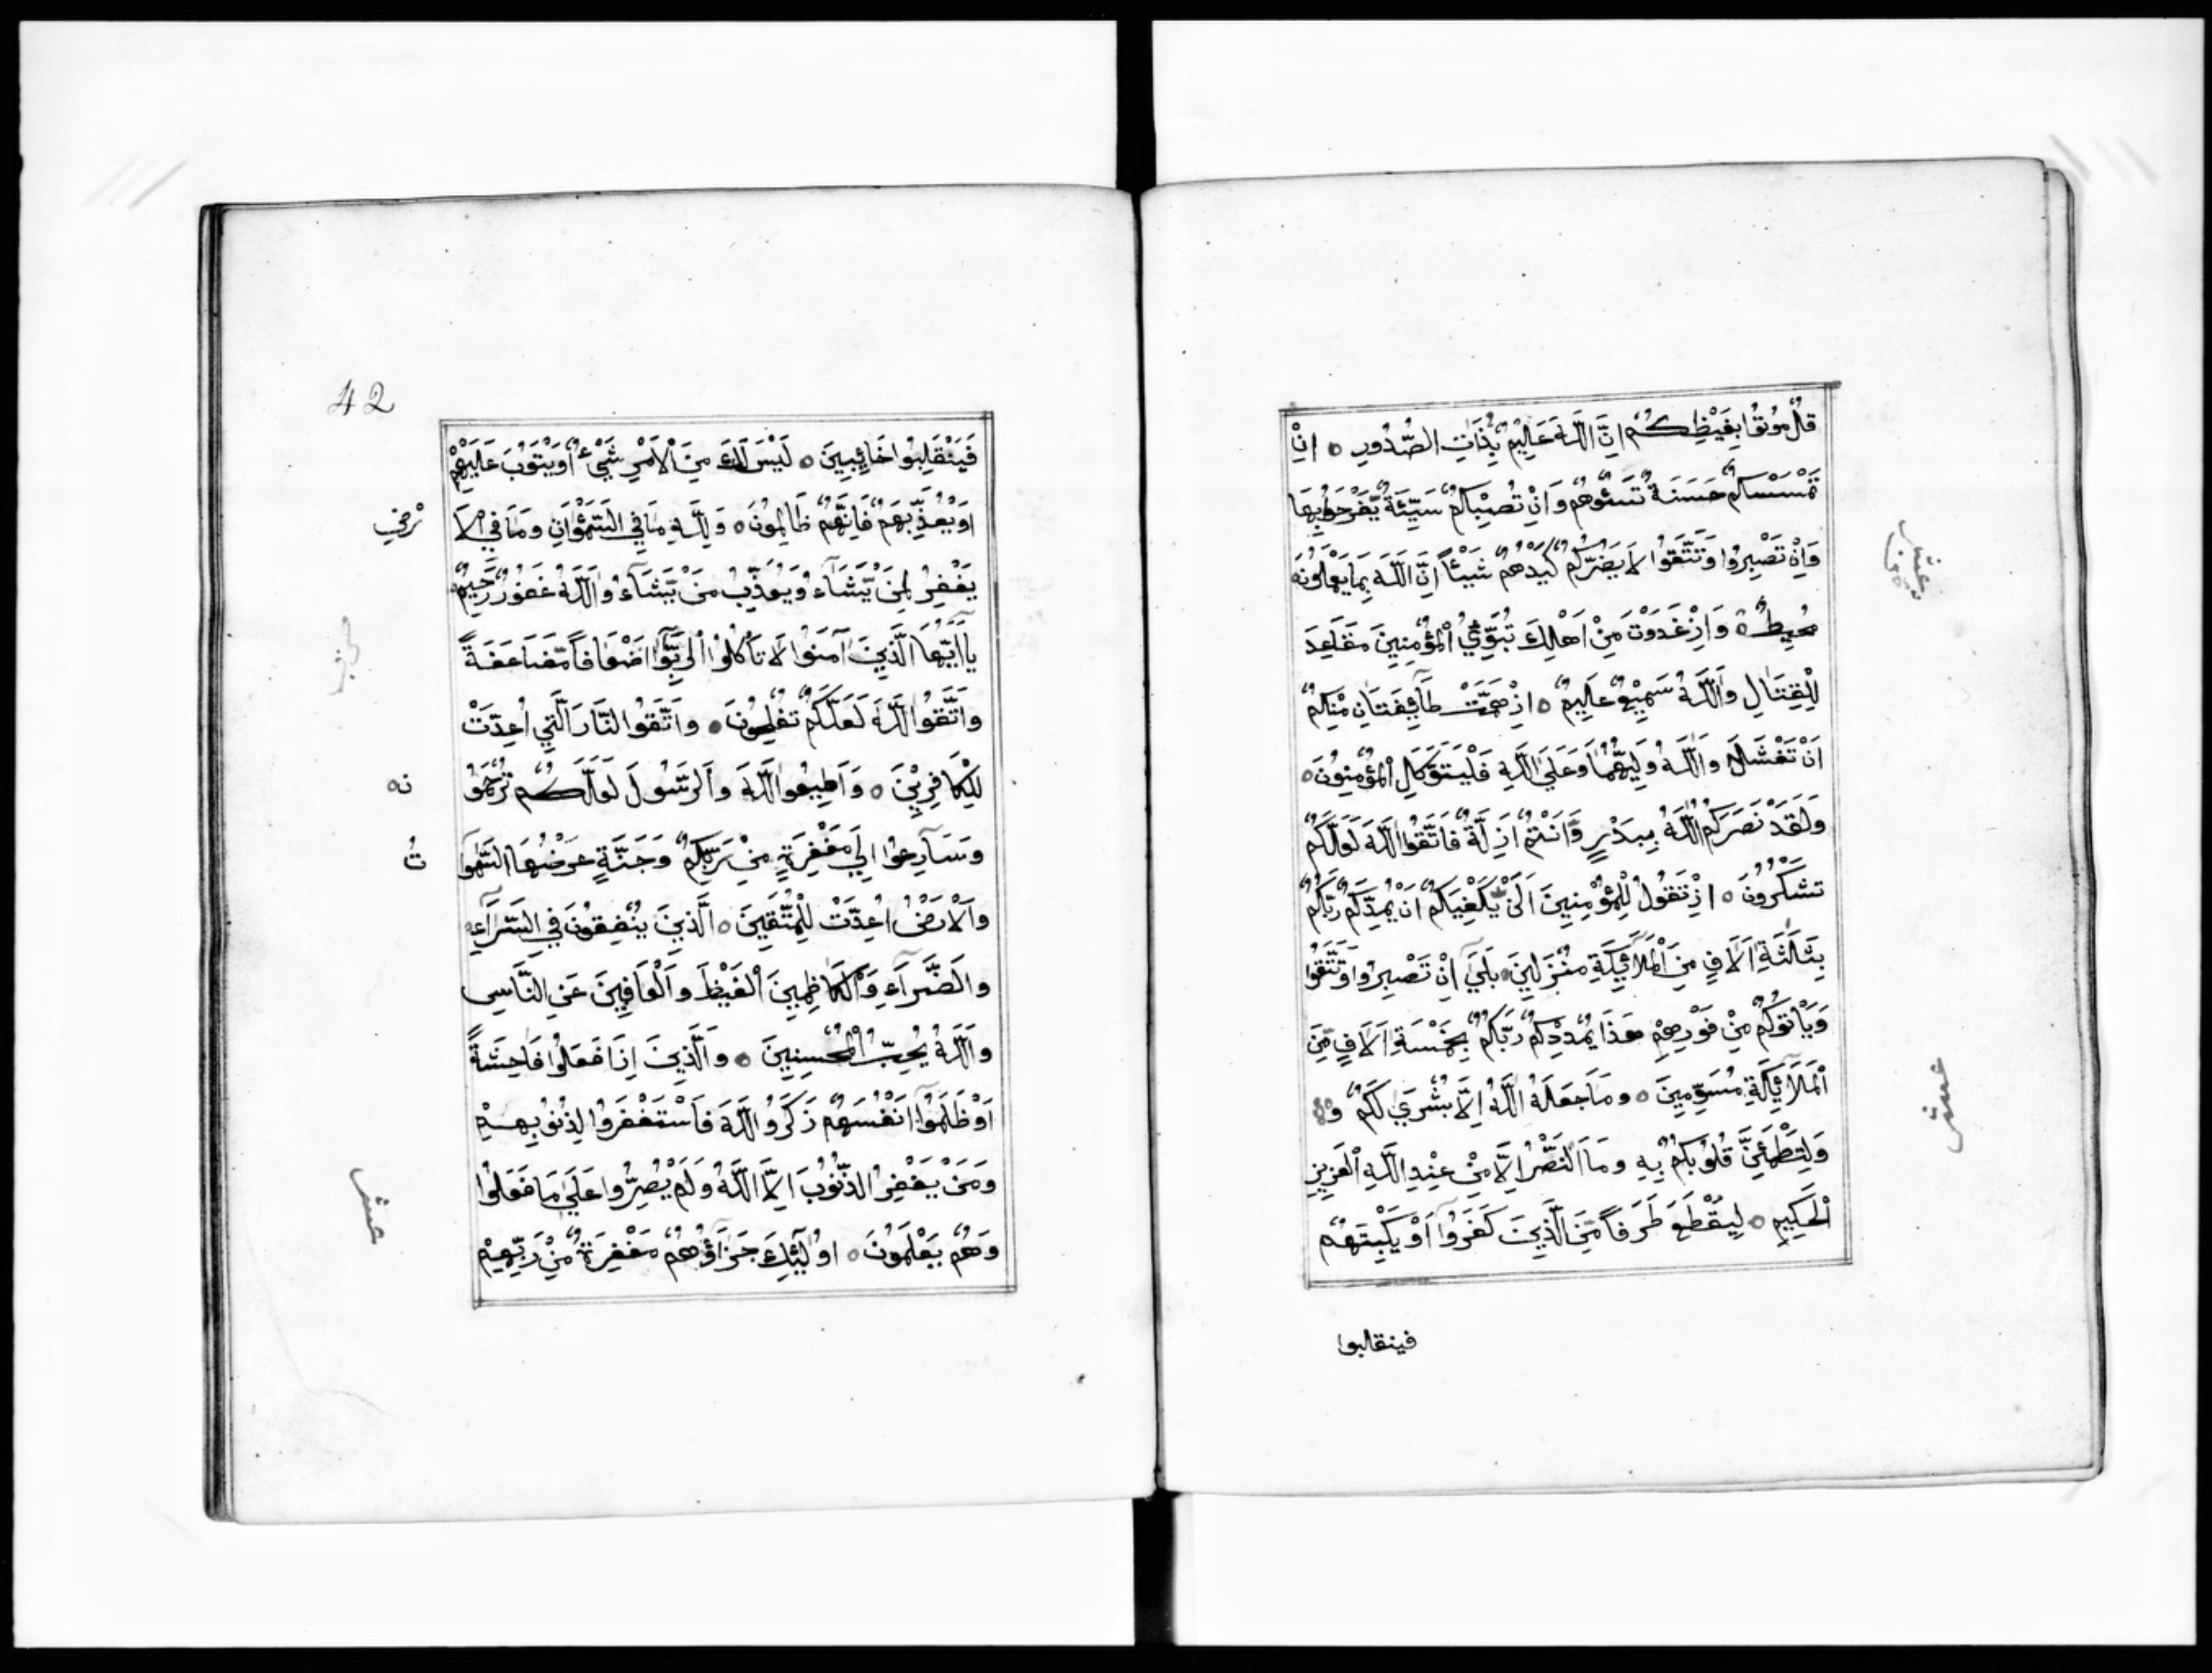 قُلْ مُوتُوا بِغَيْظِكُمْ اِنَّ اللّٰهَ عَلِيمٌ بِذَاتِ الصُّدُورِ ٥ اِنْ
تَمْسَسْكُمْ حَسَنَةٌ تَسُؤْهُمْ وَاِنْ تُصِبْكُمْ سَيِّئَةٌ يَّفْرَحُوا بِهَا
وَاِنْ تَصْبِرُوا وَتَتَّقُوا لَا يَضُرُّكُمْ كَيْدُهُمْ شَيْئًا اِنَّ اللّٰهَ بِمَا يَعْمَلُونَ
مُحِيطٌ ٥ وَاِذْ غَدَوْتَ مِنْ اَهْلِكَ تُبَوِّئُ الْمُؤْمِنِينَ مَقَاعِدَ
لِلْقِتَالِ وَاللّٰهُ سَمِيعٌ عَلِيمٌ ٥ اِذْ هَمَّتْ طَآئِفَتَانِ مِنْكُمْ
اَنْ تَفْشَلَا وَاللّٰهُ وَلِيُّهُمَا وَعَلَى اللّٰهِ فَلْيَتَوَكَّلِ الْمُؤْمِنُونَ ٥
وَلَقَدْ نَصَرَكُمُ اللّٰهُ بِبَدْرٍ وَّاَنْتُمْ اَذِلَّةٌ فَاتَّقُوا اللّٰهَ لَعَلَّكُمْ
تَشْكُرُونَ ٥ اِذْ تَقُولُ لِلْمُؤْمِنِينَ اَلَنْ يَّكْفِيَكُمْ اَنْ يُمِدَّكُمْ رَبُّكُمْ
بِثَلٰثَةِ اٰلَافٍ مِنَ الْمَلَآئِكَةِ مُنْزَلِينَ ٥ بَلَى اِنْ تَصْبِرُوا وَتَتَّقُوا
وَيَأْتُوكُمْ مِنْ فَوْرِهِمْ هَذَا يُمْدِدْكُمْ رَبُّكُمْ بِخَمْسَةِ اٰلَافٍ مِّنَ
الْمَلَآئِكَةِ مُسَوِّمِينَ ٥ وَمَا جَعَلَهُ اللّٰهُ اِلَّا بُشْرَى لَكُمْ و
وَلِتَطْمَئِنَّ قُلُوبُكُمْ بِهِ وَمَا النَّصْرُ اِلَّا مِنْ عِنْدِ اللّٰهِ الْعَزِيزِ
الْحَكِيمِ ٥ لِيَقْطَعَ طَرَفًا مِّنَ الَّذِينَ كَفَرُوا اَوْ يَكْبِتَهُمْ
فينقلبوا
عشر
42
فَيَنْقَلِبُوا خَائِبِينَ ٥ لَيْسَ لَكَ مِنَ الْاَمْرِ شَيْءٌ اَوْ يَتُوبَ عَلَيْهِمْ
اَوْ يُعَذِّبَهُمْ فَاِنَّهُمْ ظَالِمُونَ ٥ وَلِلّٰهِ مَا فِي السَّمٰوَاتِ وَمَا فِي الْاَ
رْضِ
يَغْفِرُ لِمَنْ يَّشَآءُ وَيُعَذِّبُ مَنْ يَّشَآءُ وَاللّٰهُ غَفُورٌ رَّحِيمٌ
يَآ اَيُّهَا الَّذِينَ آمَنُوا لَا تَأْكُلُوا الرِّبٰوا اَضْعَافًا مُّضَاعَفَةً
وَاتَّقُوا اللّٰهَ لَعَلَّكُمْ تُفْلِحُونَ ٥ وَاتَّقُوا النَّارَ الَّتِي اُعِدَّتْ
لِلْكَافِرِينَ ٥ وَاَطِيعُوا اللّٰهَ وَالرَّسُولَ لَعَلَّكُمْ تُرْحَمُو
نَ ٥
وَسَارِعُوا اِلَى مَغْفِرَةٍ مِنْ رَبِّكُمْ وَجَنَّةٍ عَرْضُهَا السَّمٰوَا
تُ
وَالْاَرْضُ اُعِدَّتْ لِلْمُتَّقِينَ ٥ الَّذِينَ يُنْفِقُونَ فِي السَّرَّآءِ
وَالضَّرَّآءِ وَالْكَاظِمِينَ الْغَيْظَ وَالْعَافِينَ عَنِ النَّاسِ
وَاللّٰهُ يُحِبُّ الْمُحْسِنِينَ ٥ وَالَّذِينَ اِذَا فَعَلُوا فَاحِشَةً
اَوْ ظَلَمُوا اَنْفُسَهُمْ ذَكَرُوا اللّٰهَ فَاسْتَغْفَرُوا لِذُنُوبِهِمْ
وَمَنْ يَغْفِرُ الذُّنُوبَ اِلَّا اللّٰهُ وَلَمْ يُصِرُّوا عَلَى مَا فَعَلُوا
وَهُمْ يَعْلَمُونَ ٥ اُولٰٓئِكَ جَزَآؤُهُمْ مَغْفِرَةٌ مِنْ رَبِّهِمْ
عشر